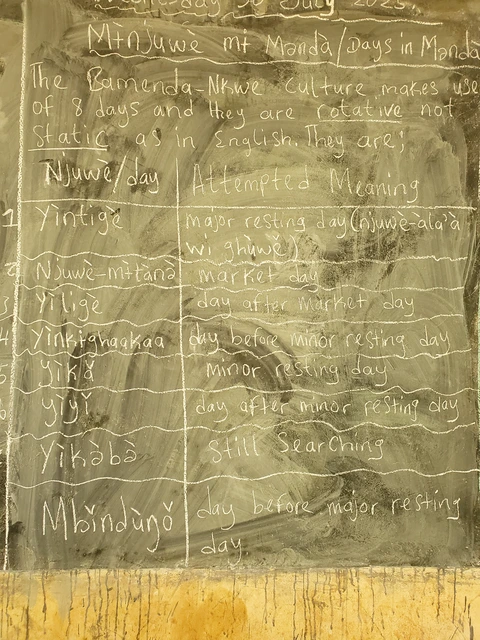 Wednesday 30 July 2025
Mɨ̀njuwè mɨ Məndà/Days in Məndà
The Bamenda-Nkwe culture makes use
of 8 days and they are rotative not
Static as in English. They are;
Njuwè/day Attempted Meaning
1 Yìntìgè major resting day (njuwè-àla'à
wì ghùwè))
2 Njuwè-mɨ̀tànà market day
3 Yìlìge day after market day
4 Yìnkɨ̀ghaakaa day before minor resting day
5 Yìkǎ minor resting day
6 yìyǐ day after minor resting day
Yìkàbà Still Searching
Mbǐndùŋǒ day before major resting
day